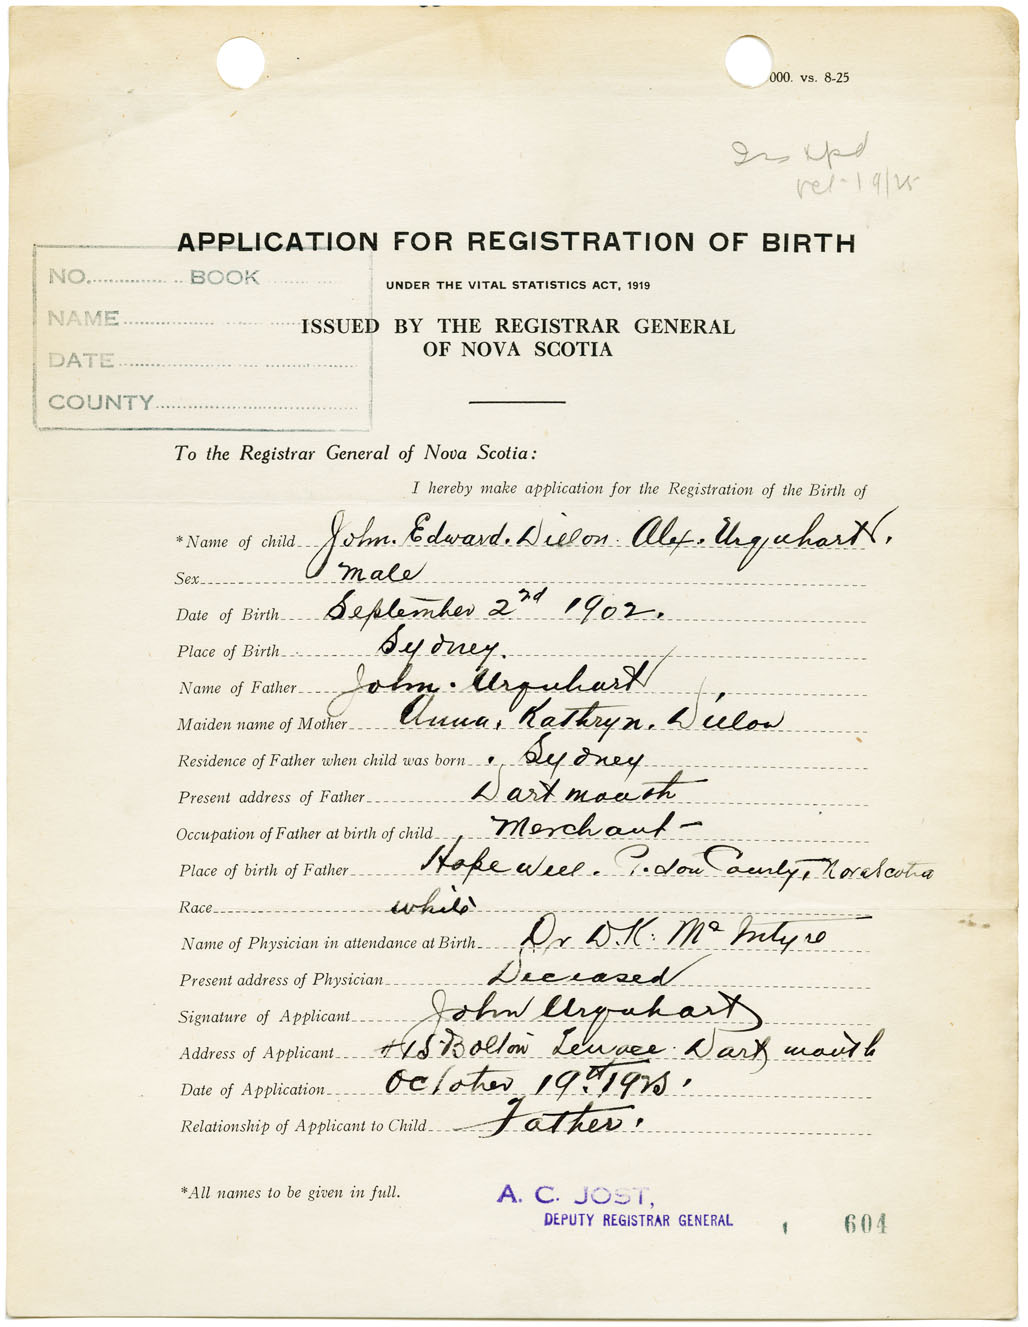 000. vs. 8-25
Oct-19/25
APPLICATION FOR REGISTRATION OF BIRTH
NO. BOOK
UNDER THE VITAL STATISTICS ACT, 1919
NAME
ISSUED BY THE REGISTRAR GENERAL
OF NOVA SCOTIA
DATE
COUNTY
To the Registrar General of Nova Scotia:
I hereby make application for the Registration of the Birth of
*Name of child John. Edward. Dillon. Alex. Urquhart.
Sex Male
Date of Birth September 2nd 1902.
Place of Birth Sydney.
Name of Father John. Urquhart
Maiden name of Mother Anna. Kathryn. Dillon
Residence of Father when child was born Sydney
Present address of Father Dartmouth
Occupation of Father at birth of child Merchant -
Place of birth of Father Hopewell. Pictou County, Nova Scotia
Race white
Name of Physician in attendance at Birth Dr D.K. McIntyre
Present address of Physician Deceased
Signature of Applicant John Urquhart
Address of Applicant Bolton Terrace. Dartmouth
Date of Application October 19th 1925.
Relationship of Applicant to Child Father.
*All names to be given in full.
A. C. JOST,
DEPUTY REGISTRAR GENERAL
604